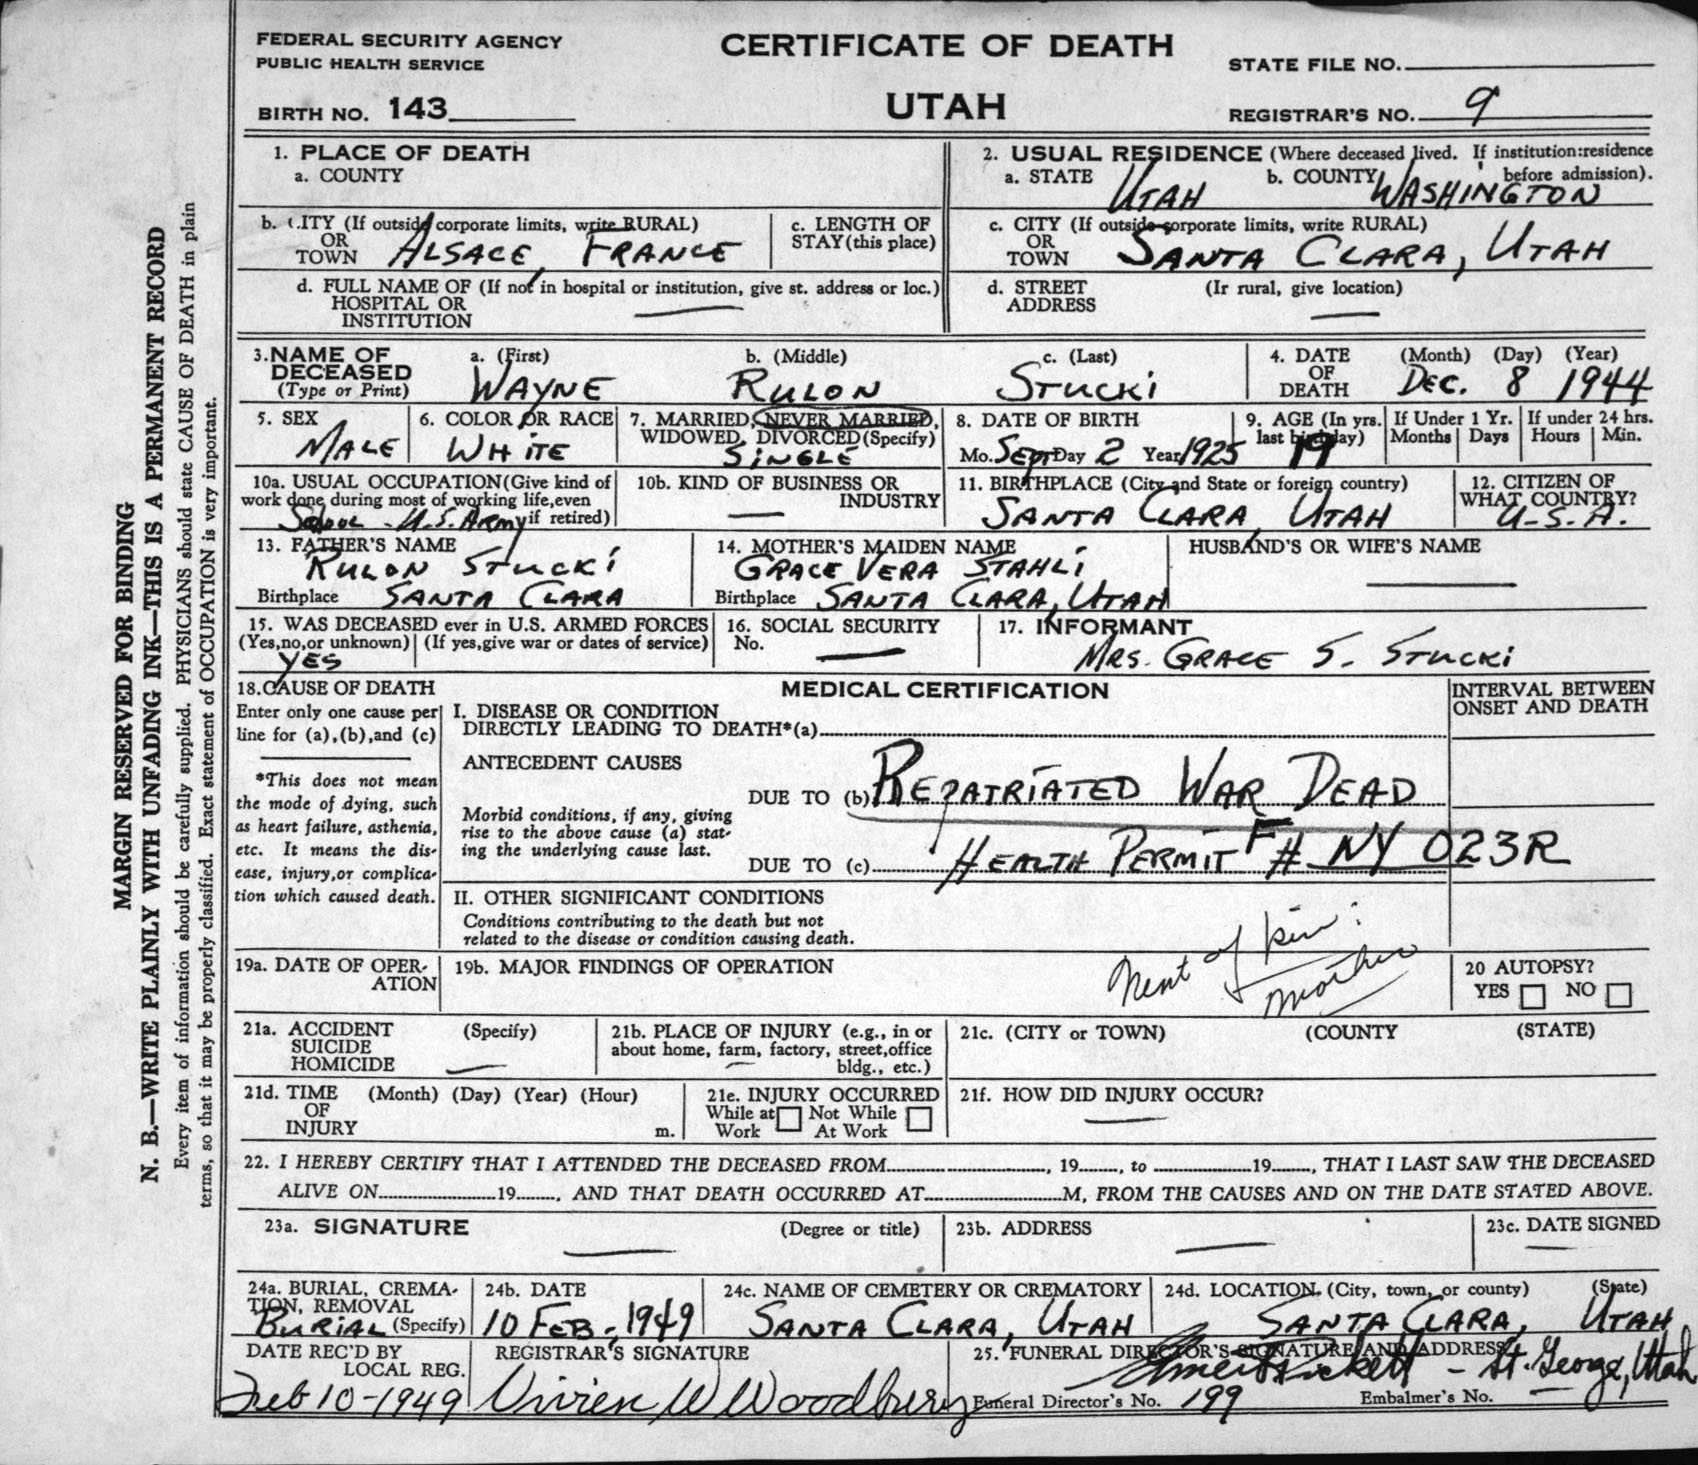 FEDERAL SECURITY AGENCY
PUBLIC HEALTH SERVICE
CERTIFICATE OF DEATH
STATE FILE NO.
BIRTH NO. 143
UTAH
REGISTRAR'S NO. 9
MARGIN RESERVED FOR BINDING
N. B.—WRITE PLAINLY WITH UNFADING INK—THIS IS A PERMANENT RECORD
Every item of information should be carefully supplied. PHYSICIANS should state CAUSE OF DEATH in plain
terms, so that it may be properly classified. Exact statement of OCCUPATION is very important.
1. PLACE OF DEATH
a. COUNTY
2. USUAL RESIDENCE (Where deceased lived. If institution:residence
before admission).
a. STATE UTAH b. COUNTY WASHINGTON
b. CITY (If outside corporate limits, write RURAL)
OR
TOWN ALSACE, FRANCE
c. LENGTH OF
STAY (this place)
c. CITY (If outside corporate limits, write RURAL)
OR
TOWN SANTA CLARA, UTAH
d. FULL NAME OF (If not in hospital or institution, give st. address or loc.)
HOSPITAL OR
INSTITUTION —
d. STREET (Ir rural, give location)
ADDRESS —
3. NAME OF DECEASED (Type or Print)
a. (First) b. (Middle) c. (Last)
WAYNE RULON STUCKI
4. DATE OF DEATH (Month) (Day) (Year)
DEC. 8 1944
5. SEX
MALE
6. COLOR OR RACE
WHITE
7. MARRIED, NEVER MARRIED,
WIDOWED, DIVORCED (Specify)
SINGLE
8. DATE OF BIRTH
Mo. SEPT Day 2 Year 1925
9. AGE (In yrs. last birthday)
19
If Under 1 Yr.
Months Days
If under 24 hrs.
Hours Min.
10a. USUAL OCCUPATION (Give kind of
work done during most of working life, even
if retired)
SCHOOL - U.S. ARMY
10b. KIND OF BUSINESS OR
INDUSTRY
—
11. BIRTHPLACE (City and State or foreign country)
SANTA CLARA, UTAH
12. CITIZEN OF
WHAT COUNTRY?
U.S.A.
13. FATHER'S NAME
RULON STUCKI
Birthplace SANTA CLARA
14. MOTHER'S MAIDEN NAME
GRACE VERA STAHLI
Birthplace SANTA CLARA, UTAH
HUSBAND'S OR WIFE'S NAME
—
15. WAS DECEASED ever in U.S. ARMED FORCES
(Yes, no, or unknown) (If yes, give war or dates of service)
YES
16. SOCIAL SECURITY
No. —
17. INFORMANT
MRS. GRACE S. STUCKI
18. CAUSE OF DEATH
Enter only one cause per
line for (a), (b), and (c)
*This does not mean
the mode of dying, such
as heart failure, asthenia,
etc. It means the dis-
ease, injury, or complica-
tion which caused death.
MEDICAL CERTIFICATION
INTERVAL BETWEEN
ONSET AND DEATH
I. DISEASE OR CONDITION
DIRECTLY LEADING TO DEATH*(a)
ANTECEDENT CAUSES
DUE TO (b) REPATRIATED WAR DEAD
Morbid conditions, if any, giving
rise to the above cause (a) stat-
ing the underlying cause last.
DUE TO (c) HEALTH PERMIT F# NY 023R
II. OTHER SIGNIFICANT CONDITIONS
Conditions contributing to the death but not
related to the disease or condition causing death.
Next of kin:
mother
19a. DATE OF OPER-
ATION
19b. MAJOR FINDINGS OF OPERATION
20 AUTOPSY?
YES NO
21a. ACCIDENT (Specify)
SUICIDE
HOMICIDE —
21b. PLACE OF INJURY (e.g., in or
about home, farm, factory, street, office
bldg., etc.)
—
21c. (CITY or TOWN) (COUNTY (STATE)
21d. TIME (Month) (Day) (Year) (Hour)
OF
INJURY m.
21e. INJURY OCCURRED
While at Work Not While At Work
21f. HOW DID INJURY OCCUR?
—
22. I HEREBY CERTIFY THAT I ATTENDED THE DECEASED FROM , 19 , to 19 , THAT I LAST SAW THE DECEASED
ALIVE ON 19 , AND THAT DEATH OCCURRED AT M, FROM THE CAUSES AND ON THE DATE STATED ABOVE.
23a. SIGNATURE (Degree or title)
—
23b. ADDRESS
—
23c. DATE SIGNED
—
24a. BURIAL, CREMA-
TION, REMOVAL
(Specify)
BURIAL
24b. DATE
10 FEB., 1949
24c. NAME OF CEMETERY OR CREMATORY
SANTA CLARA, UTAH
24d. LOCATION (City, town, or county) (State)
SANTA CLARA, UTAH
DATE REC'D BY
LOCAL REG.
Feb 10-1949
REGISTRAR'S SIGNATURE
Vivien W Woodbury
25. FUNERAL DIRECTOR'S SIGNATURE AND ADDRESS
Pickett - St. George, Utah
Funeral Director's No. 199
Embalmer's No. —